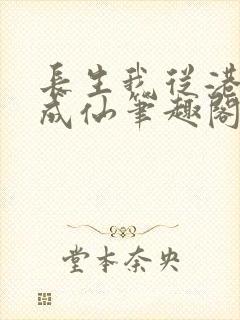 長生我從港
成仙筆趣閣
堂本奈央